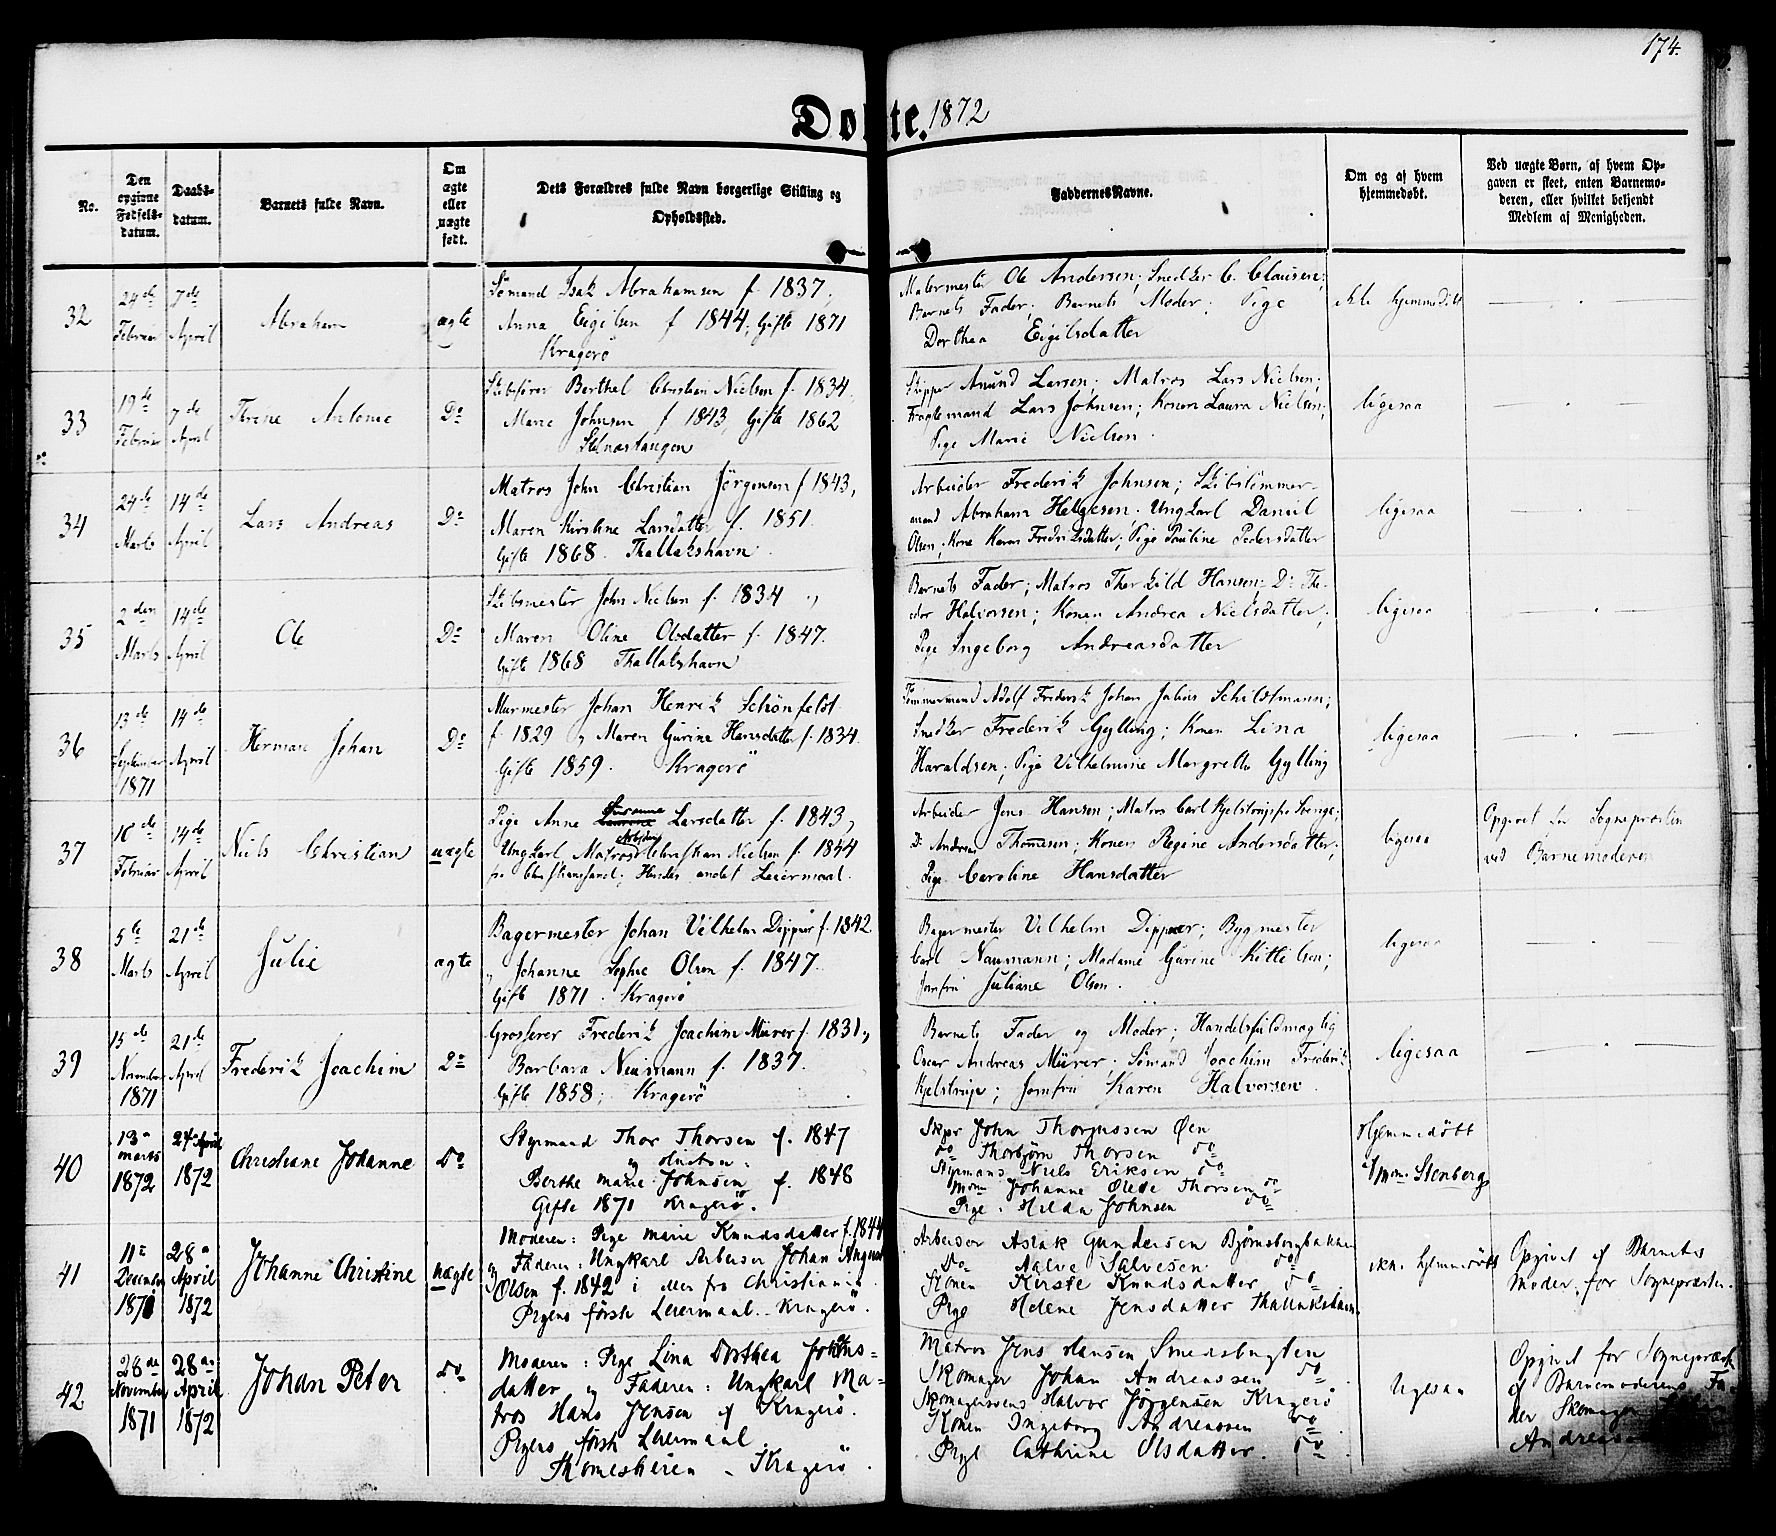 174.
Døbte. 1872
No.
Den opgivne Fødsels-datum.
Daabs-datum.
Barnets fulde Navn.
Om ægte eller uægte født.
Dets Forældres fulde Navn borgerlige Stilling og Opholdssted.
Faddernes Navne.
Om og af hvem hjemmedøbt.
Ved uægte Børn, af hvem Op-
gaven er skeet, enten Barnemo-
deren, eller hvilket bekjendt
Medlem af Menigheden.
32
24de Februar
7de April
Abraham
ægte
Sömand Isak Abrahamsen f. 1837,
Anna Eigilsen f 1844; Gift 1871
Kragerö
Malermester Ole Andersen; Snedker C. Clausen;
Barnets Fader; Barnets Moder; Pige
Dorthea Eigilsdatter
ikke hjemmedöbt
33
19de Februar
7de April
Thrine Antonie
Do
Skibsfører Berthel Christian Nielsen f. 1834,
Marie Johnsen f 1843, Gift 1862
Stilnæstangen
Skipper Anund Larsen; Matros Lars Nielsen;
Fragtemand Lars Johnsen; Konen Laura Nielsen;
Pige Marie Nielsen.
ligesaa
34
24de Marts
14de April
Lars Andreas
Do
Matros John Christian Jörgensen f 1843,
Maren Kirstine Larsdatter f. 1851.
Gift 1868. Thallakshavn.
Arbeider Frederik Johnsen; Skibstömmer-
mand Abraham Helgesen. Ungkarl Daniil
Olsen, Kone Karen Fredriksdatter; Pige Pauline Pedersdatter
ligesaa
35
2den Marts
14de April
Ole
Do
Skibsmester John Nielsen f. 1834 og
Maren Oline Olsdatter f. 1847.
Gift 1868 Thallakshavn
Barnets Fader; Matros Therkild Hansen; Do The-
odor Halvorsen; Konen Andrea Nielsdatter;
Pige Ingeborg Andreasdatter
ligesaa
36
13de September 1871
14de April
Herman Johan
Do
Murmester Johan Henrik Schönfeldt
f. 1829 og Maren Gurine Hansdatter f. 1834.
Gift 1859. Kragerö
Tömmermand Adolf Frederik Johan Julius Schildtmann;
Snedker Frederik Gylling; Konen Lina
Haraldsen; Pige Vilhelmine Margrethe Gylling
ligesaa
37
Februar
14de April
Niels Christian
uægte
Pige Anne Susanne Larsdatter f. 1843,
Ungkarl, Matros Christian Nielsen f. 1844
fra Christiansand; Hendes andet Leiermaal.
Arbeider Jens Hansen; Matros Carl Kjelstrup;
Do Andreas Thommesen; Konen Regine Andersdatter;
Pige Caroline Hansdatter
ligesaa
Opgivet for Sognepræsten
ved Barnemoderen
38
5te Marts
21de April
Julie
ægte
Bagermester Johan Vilhelm Dippner f. 1842
og Johanne Sophie Olsen f. 1847.
Gift 1871. Kragerö
Bagermester Vilhelm Dippner; Bygmester
Carl Naumann; Madame Gurine Kittilsen;
Jomfru Juliane Olsen.
ligesaa
39
15de November 1871
21de April
Frederik Joachim
Do
Grosserer Frederik Joachim Mürer f. 1831,
Barbara Neumann f. 1837.
Gift 1858; Kragerö
Barnets Fader og Moder; Handelsfuldmægtig
Oscar Andreas Mürer; Sömand Joachim Frederik
Kjelstrup; Jomfru Karen Halvorsen.
ligesaa
40
13de marts 1872
24de April 1872
Christiane Johanne
Do
Styrmand Thor Thorsen f. 1847
og Hustru:
Berthe marie Johnsen f. 1848
Gifte 1871 Kragerö.
Skper John Thorgussen Øen
do Thorbjørn Thorsen do
Styrmand Niels Eriksen do
Mdm Johanne Olede Thorsen do
Pige. Hilda Johnsen do
Hjemmedöbt
af Mdm Stenberg
41
11te December 1871
28de April 1872
Johanne Christine
uægte
Moderen: Pige marie Knudsdatter f. 1844
og Faderen: Ungkarl Arbeider Johan August
Olsen f. 1842 i eller fra Christiania
Pigens första Leiermaal. Kragerö.
Arbeider Aslak Gundersen Bjørnsborgbakken
Do Aalve Salvesen do
Konen Kirste Knudsdatter do
Pige Helene Jensdatter Thallakshavn
ikke hjemmedöbt
Opgivet af Barnets
Moder for Sognepræsten.
42
28de November 1871
28de April 1872
Johan Peter
Do
Moderen: Pige Lina Dorthea Johns-
datter og Faderen: Ungkarl Ma-
tros Hans Jensen af Kragerö.
Pigens förste Leiermaal.
Thomesheien - Kragerö.
Matros Jens Hansen Smedsbugten
Skomager Johan Andreassen do
Skomagersvend Halvor Jørgensen Kragerö
Konen Ingeborg Andreassen do
Pige Cathrine Olsdatter. do
ligesaa
Opgivet for Sognepræst
af Barnemoderens Fa-
der Skomager
Andreas